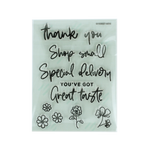 thank you
Shop small
Special delivery
YOU'VE GOT
Great taste